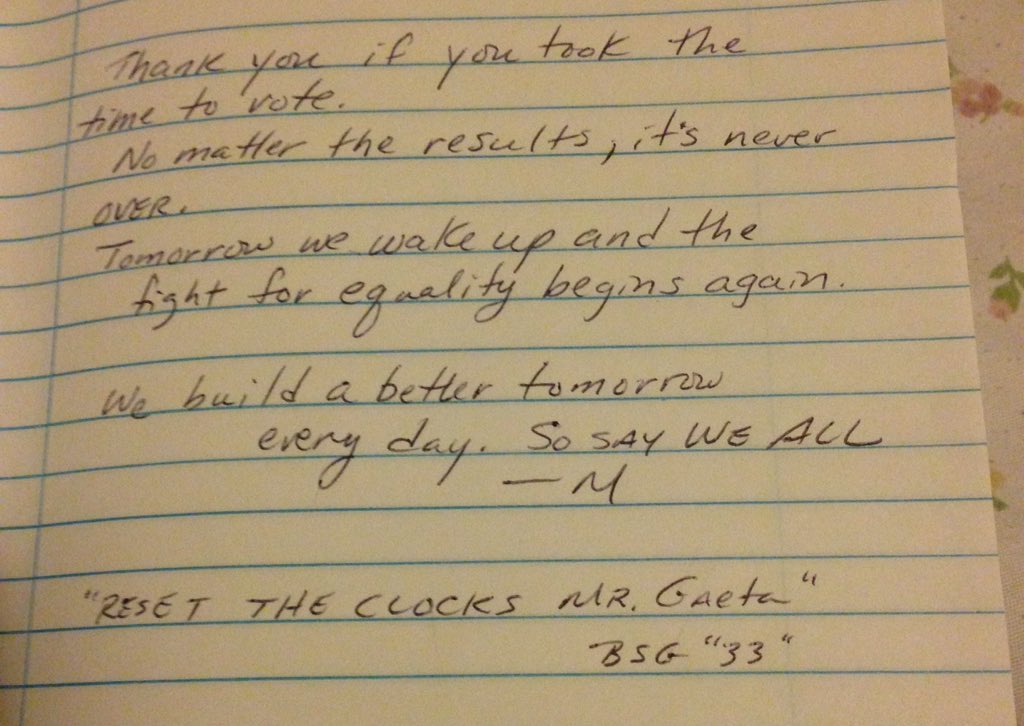 Thank you if you took the
time to vote.
No matter the results, it's never
OVER.
Tomorrow we wake up and the
fight for equality begins again.
We build a better tomorrow
every day. So SAY WE ALL
— M
"RESET THE CLOCKS MR. Gaeta"
BSG "33"